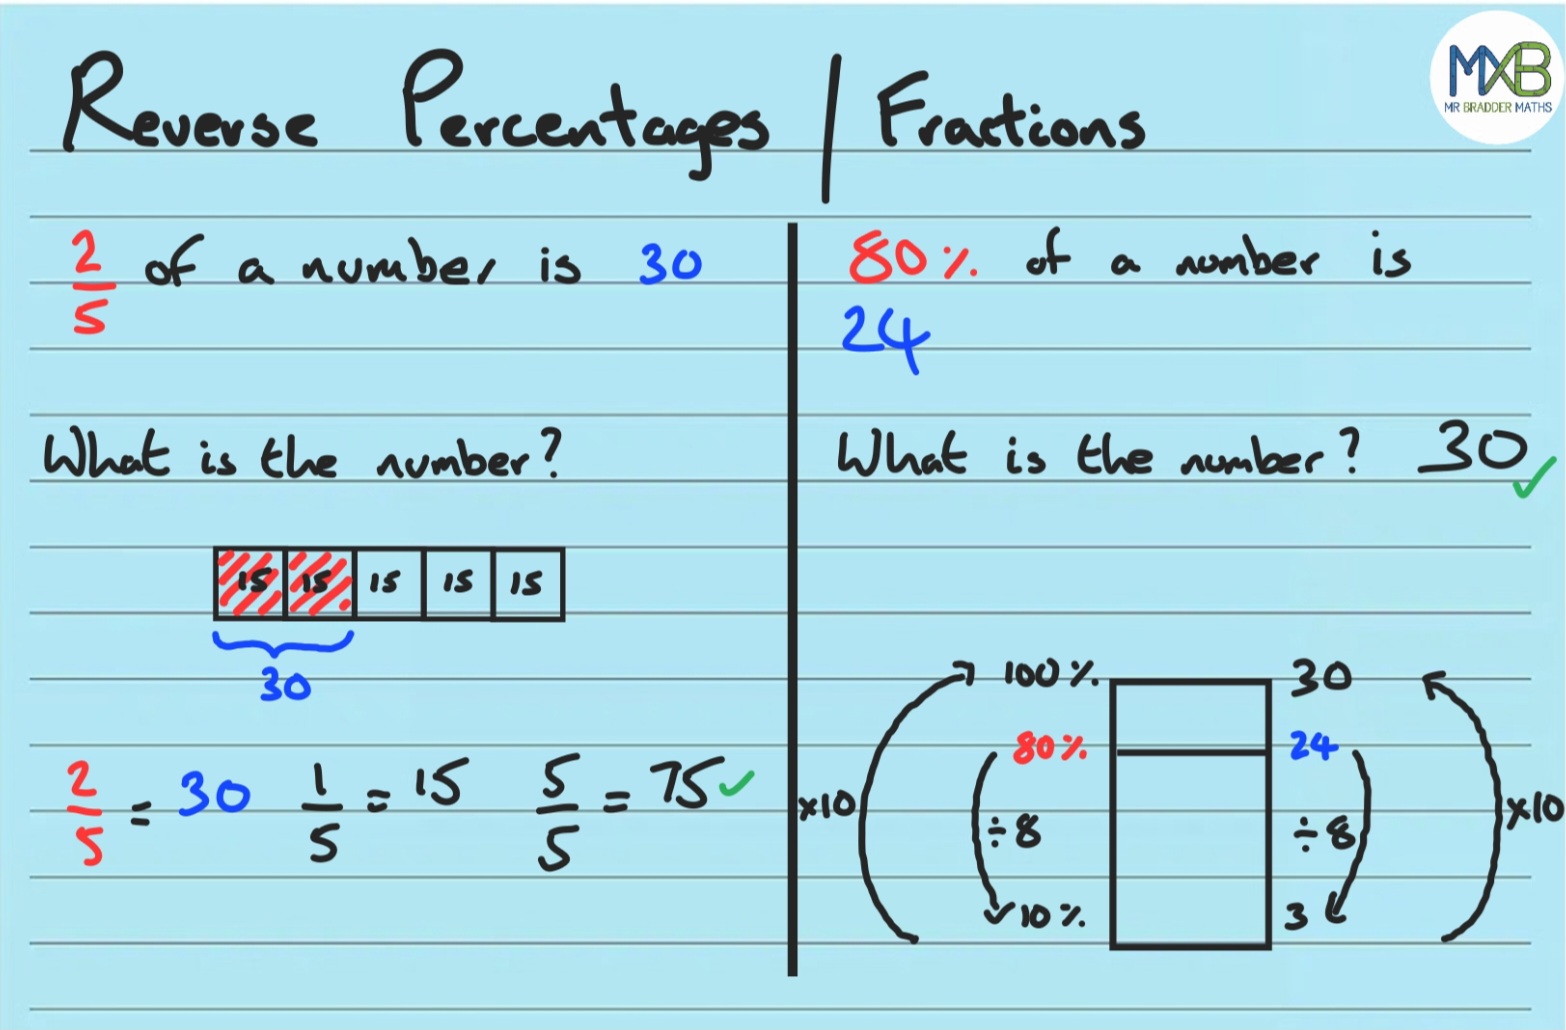 Reverse Percentages / Fractions
MXB
MR BRADDER MATHS
2/5 of a number is 30
What is the number?
15 15 15 15 15
30
2/5 = 30 1/5 = 15 5/5 = 75 ✓
80% of a number is
24
What is the number? 30 ✓
100% 30
80% 24
×10 ÷8 ÷8 ×10
10% 3